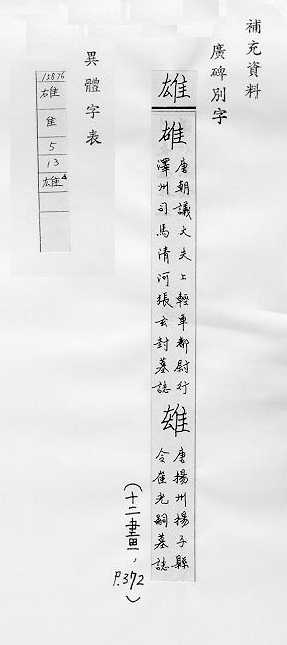 補充資料
廣碑別字
雄
雄
唐朝議大夫上輕車都尉行
澤州司馬清河張玄封墓誌
雄
唐揚州揚子縣
令崔光嗣墓誌
(十二畫,
P.372)
異體字表
隹
5
13
雄